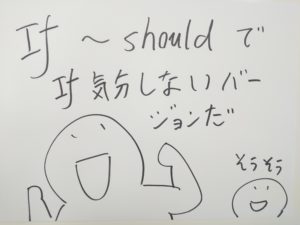 If 〜 should で
If 気分しないバー
ジョンだ
そうそう